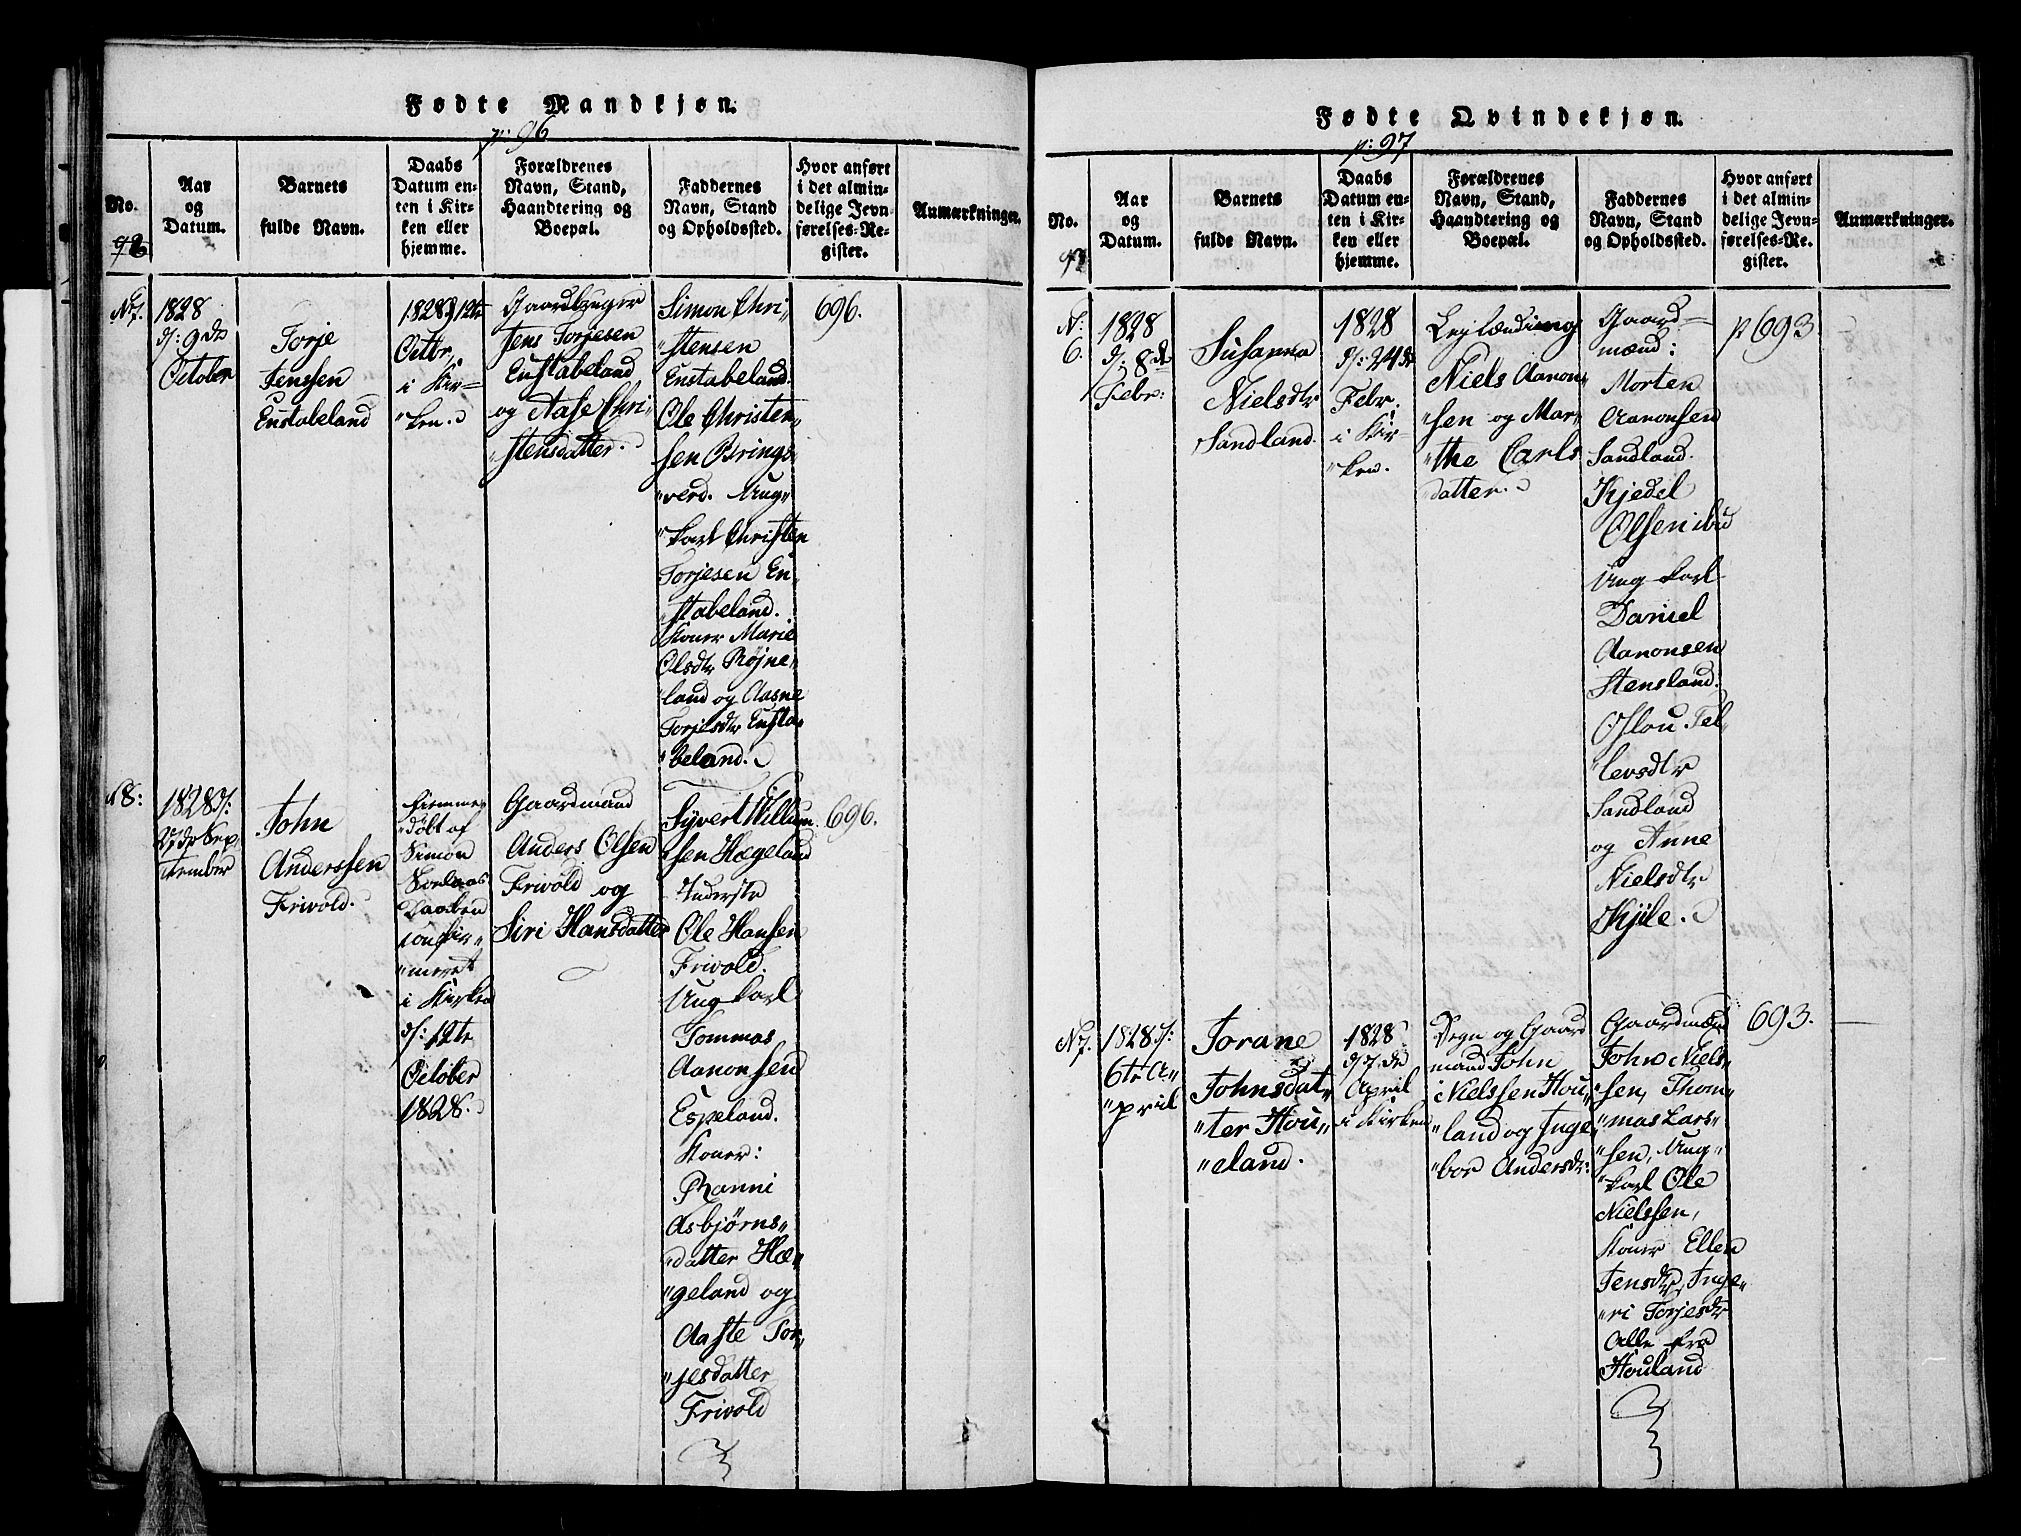 Fødte Mandkjøn.
p: 96
No.
Aar
og
Datum.
Barnets
fulde Navn.
Daabs
Datum en-
ten i Kir-
ken eller
hjemme.
Forældrenes
Navn, Stand,
Haandtering og
Boepæl.
Faddernes
Navn, Stand
og Opholdssted.
Hvor anført
i det almin-
delige Jevn-
førelses-Re-
gister.
Anmærkninger.
N 7.
1828
d: 9de
October
Torje
Jenssen
Enstabeland
1828 d 12te
Octbr,
i Kir-
"ken.
Gaardbruger
Jens Torjesen
Enstabeland
og Aase Chri-
"stensdatter.
Simon Chri-
"stensen
Enstabeland.
Ole Christen-
sen Brings-
"verd. Ung-
"karl Christen
Torjesen En-
"stabeland.
Koner Marie
Olsdtr Røjne-
"land og Aasne
Torjesdtr Ensta-
"beland.
696.
N 8:
1828 d:
27de Sep-
tember
John
Anderssen
Frivold.
Hjemme-
"døbt af
Simon
Daaben
confir-
"meret
i Kirken
d: 12te
October
1828.
Gaardmand
Anders Olsen
Frivold og
Siri Hansdatter
Syvert Willum-
sen Hægeland
Inderste
Ole Hansen
Frivold.
Ung karl
Tommas
Aanonsen
Espeland.
Koner:
Ranni
Asbjørns-
"datter Hæ-
"geland og
Aaste Tor-
"jesdatter
Frivold
696.
Fødte Qvindekjøn.
p: 97
No.
Aar
og
Datum.
Barnets
fulde Navn.
Daabs
Datum en-
ten i Kir-
ken eller
hjemme.
Forældrenes
Navn, Stand,
Haandtering og
Boepæl.
Faddernes
Navn, Stand
og Opholdssted.
Hvor anført
i det almin-
delige Jevn-
førelses-Re-
gister.
Anmærkninger.
N:
6.
1828
d: 8de
Febr:
Susanna
Nielsdtr
Sandland.
1828
d: 24de
Febr.
i Kir-
"ken.
Lejlænding
Niels Aanon-
"sen og Mar-
"the Carls
datter.
Gaard-
mænd:
Morten
Aanonsen
Sandland.
Kjedel
Olsen ibid
Ung karl
Daniel
Aanonsen
Stensland.
Oslou Tel-
"levsdtr
Sandland
og Anne
Nielsdtr
Kjile.
p 693
N 7.
1828 d:
6te A-
"pril
Torane
Johnsdat-
"ter Hou-
"eland.
1828
d 7de
April
i Kirken
Degn og Gaard
mand John
Nielssen Hou-
"land og Inge
"bor Andersdtr:
Gaardmænd
John Niels-
"sen, Thom-
"mas Lars-
"sen, Ung-
"karl Ole
Nielssen,
Koner Ellen
Jensdtr, Inge-
"ri Torjesdtr
Alle fra
Houland
693.